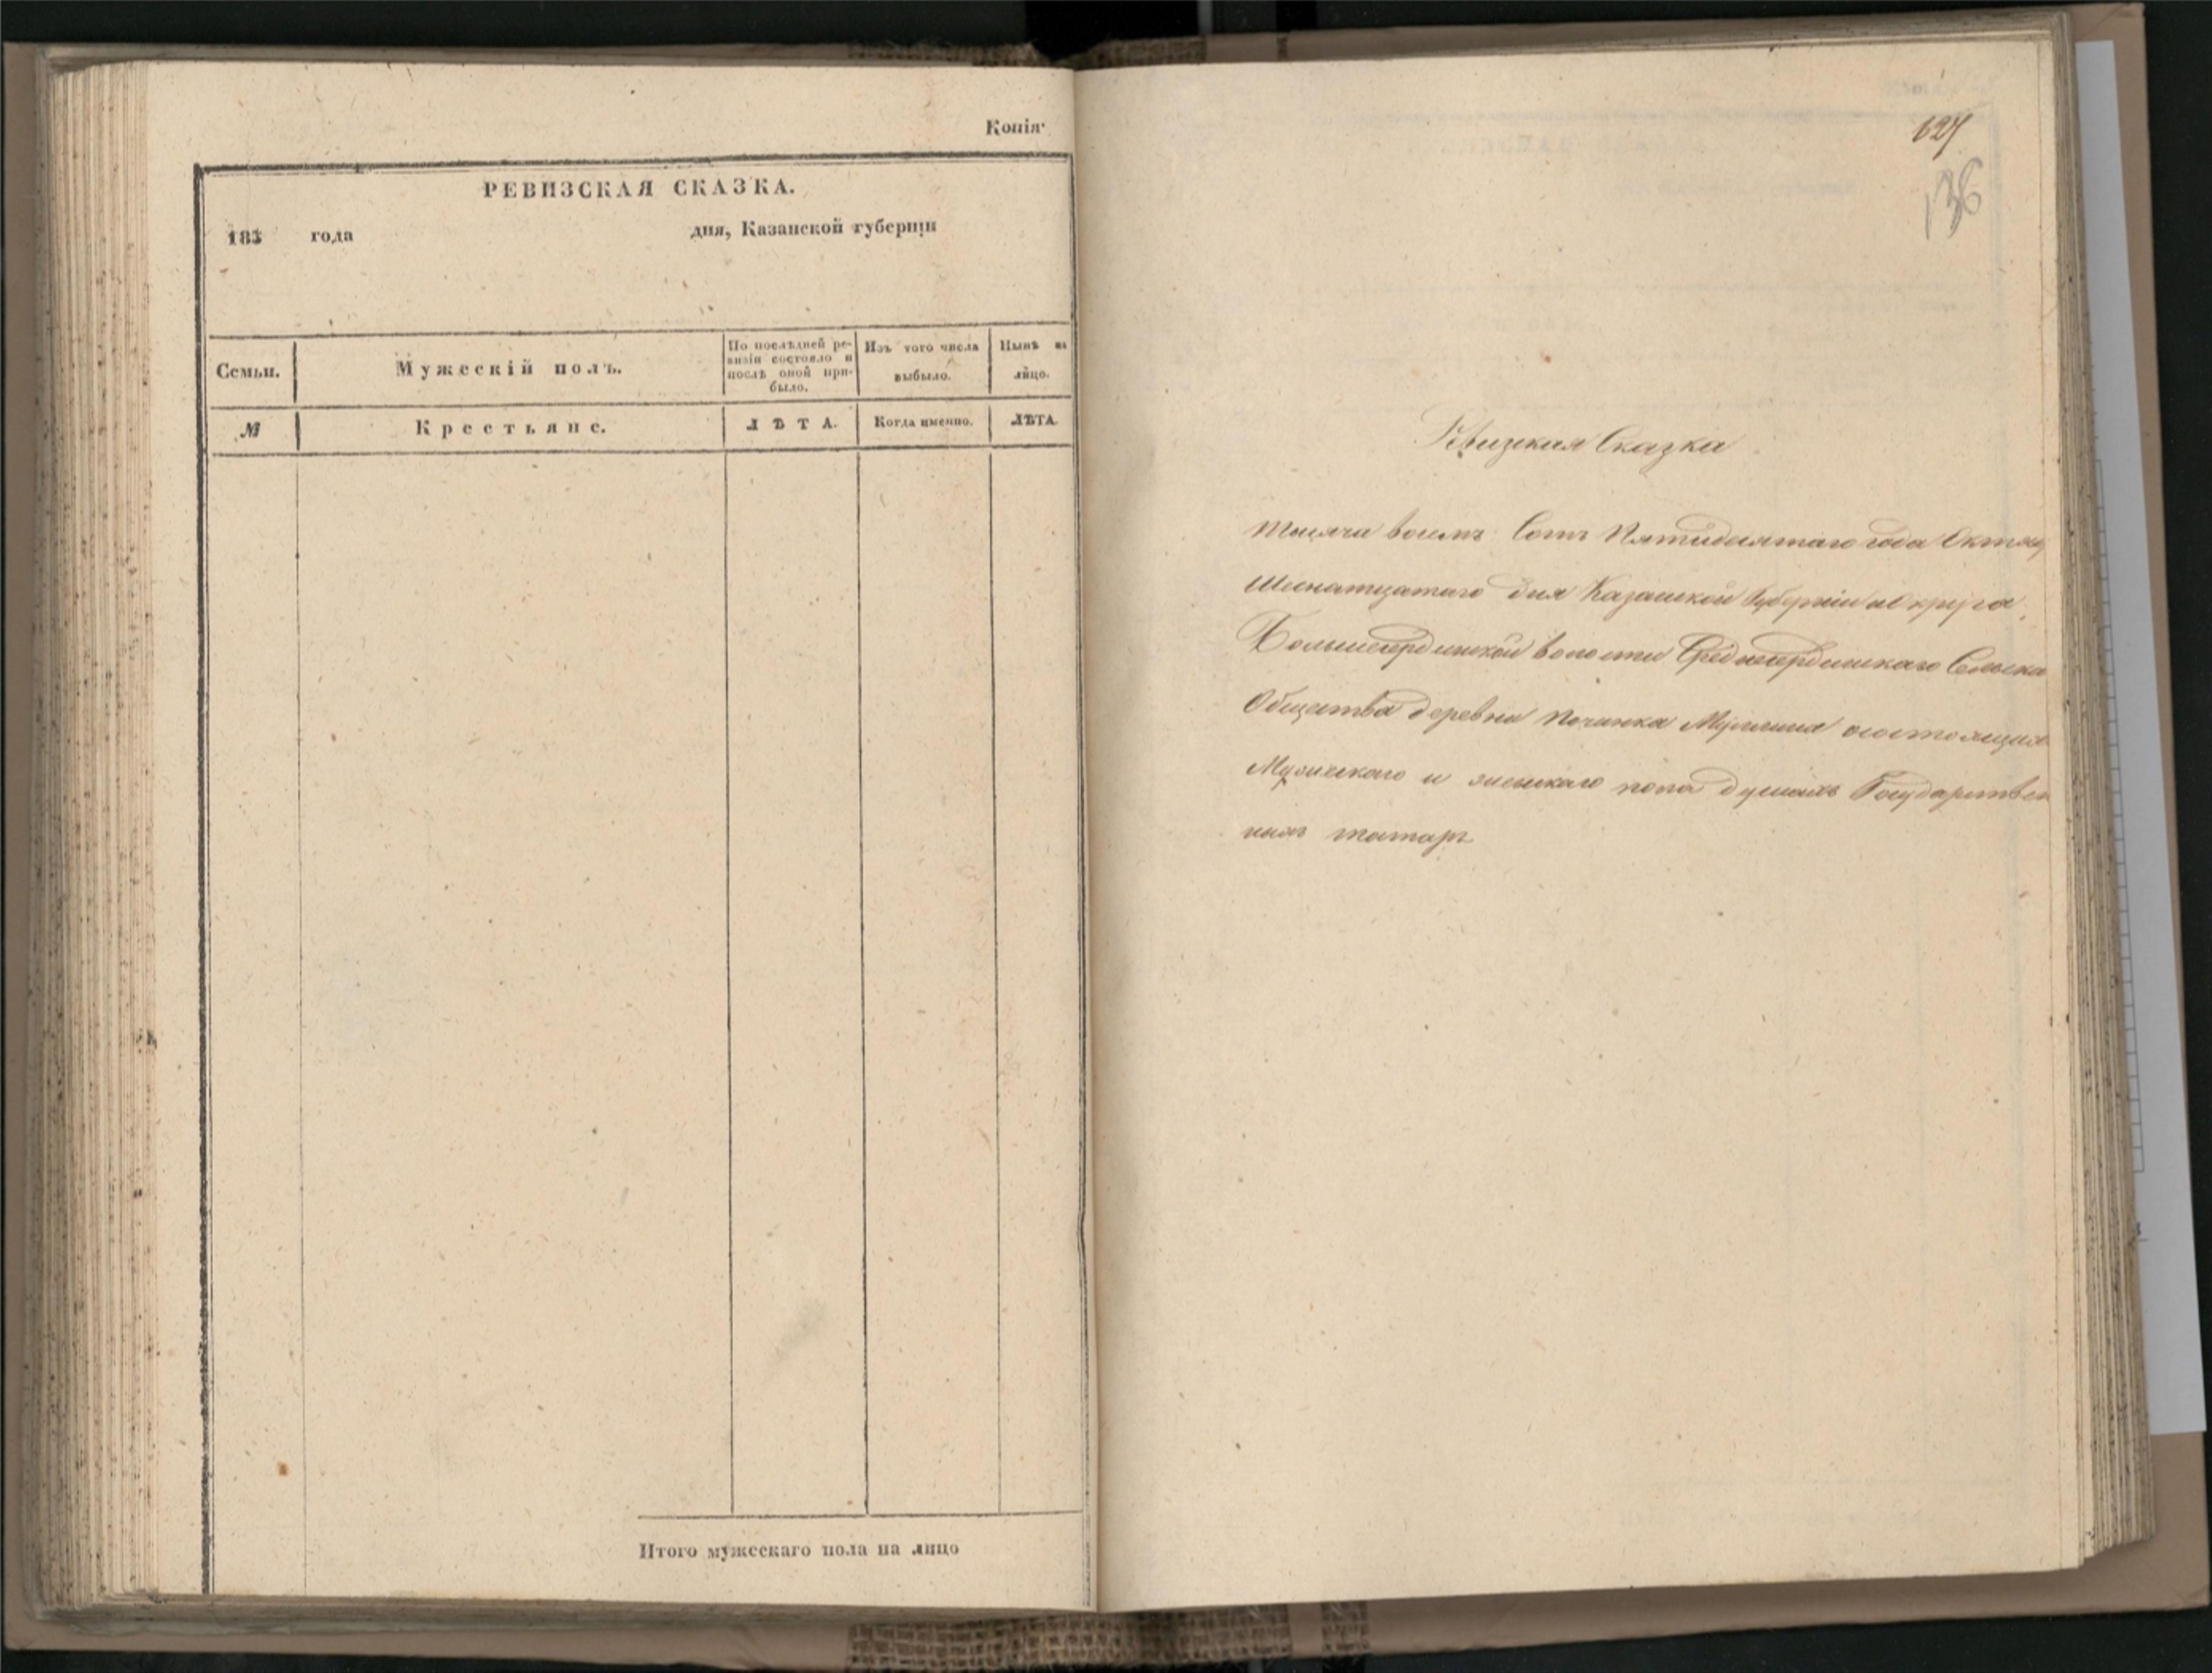 Копія
РЕВИЗСКАЯ СКАЗКА.
185 года дня, Казанской губерніи
Семьи.
Мужескій полъ.
По послѣдней ре-
визіи состояло и
послѣ оной при-
было.
Изъ того числа
выбыло.
Нынѣ на
лицо.
№
Крестьяне.
ЛѢТА.
Когда именно.
ЛѢТА.
Итого мужескаго пола на лицо
627
136
Ревизкая Сказка
тысяча восемь Сотъ Пятидесятаго года Октяб
Шеснатцатаго дня Казанской Губерніи округа
Большесердинской волости Среднесердинскаго Сельска
Общества деревни Починка состоящихъ
Мужескаго и женскаго пола душахъ Государствен
ныхъ татаръ